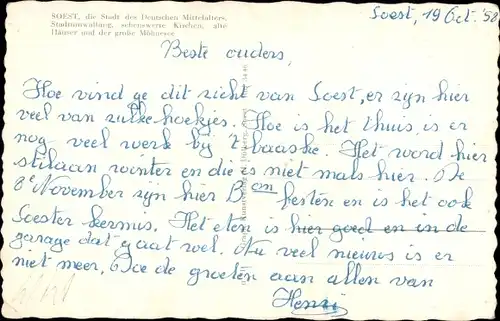 SOEST, die Stadt des Deutschen Mittelalters,
Stadtumwallung, sehenswerte Kirchen, alte
Häuser und der große Möhnesee
Soest, 19 Oct. '52
Beste ouders,
Hoe vind ge dit zicht van Soest, er zijn hier
veel van zulke hoekjes. Hoe is het thuis, is er
nog veel werk bij 't baaske. Het word hier
stilaan winter en die is niet mals hier. De
8e November zijn hier Bon festen en is het ook
Soester kermis. Het eten is hier goed en in de
garage dat gaat wel. Nu veel nieuws is er
niet meer. Doe de groeten aan allen van
Henri